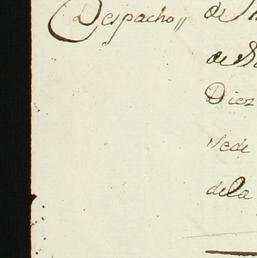 Despacho,, de
de
Diez
Sede
dela